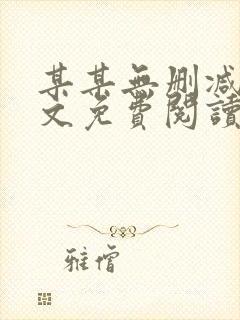 某某無删减
文免費閱讀
雅僧